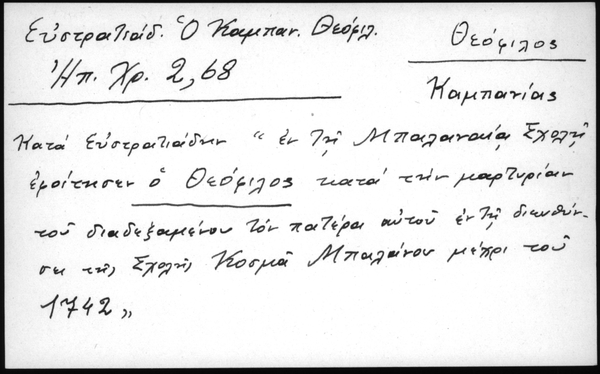 Εὐστρατιάδ. Ὁ Καμπαν. Θεόφιλ.
Ἠπ. Χρ. 2, 68
Θεόφιλος
Καμπανίας
Κατά Εὐστρατιάδην " ἐν τῇ Μπαλαναίᾳ Σχολῇ
ἐφοίτησεν ὁ Θεόφιλος κατά τήν μαρτυρίαν
τοῦ διαδεξαμένου τόν πατέρα αὐτοῦ ἐν τῇ διευθύν-
σει τῆς Σχολῆς Κοσμᾶ Μπαλάνου μέχρι τοῦ
1742 „